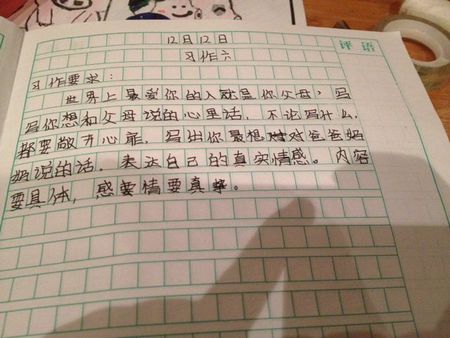 评语
12月12日
习作六
习作要求：
世界上最爱你的人就是你父母，写
写你想和父母说的心里话，不论写什么，
都要敞开心扉，写出你最想对对爸爸妈
妈说的话，表达自己的真实情感。内容
要具体，感要情要真。